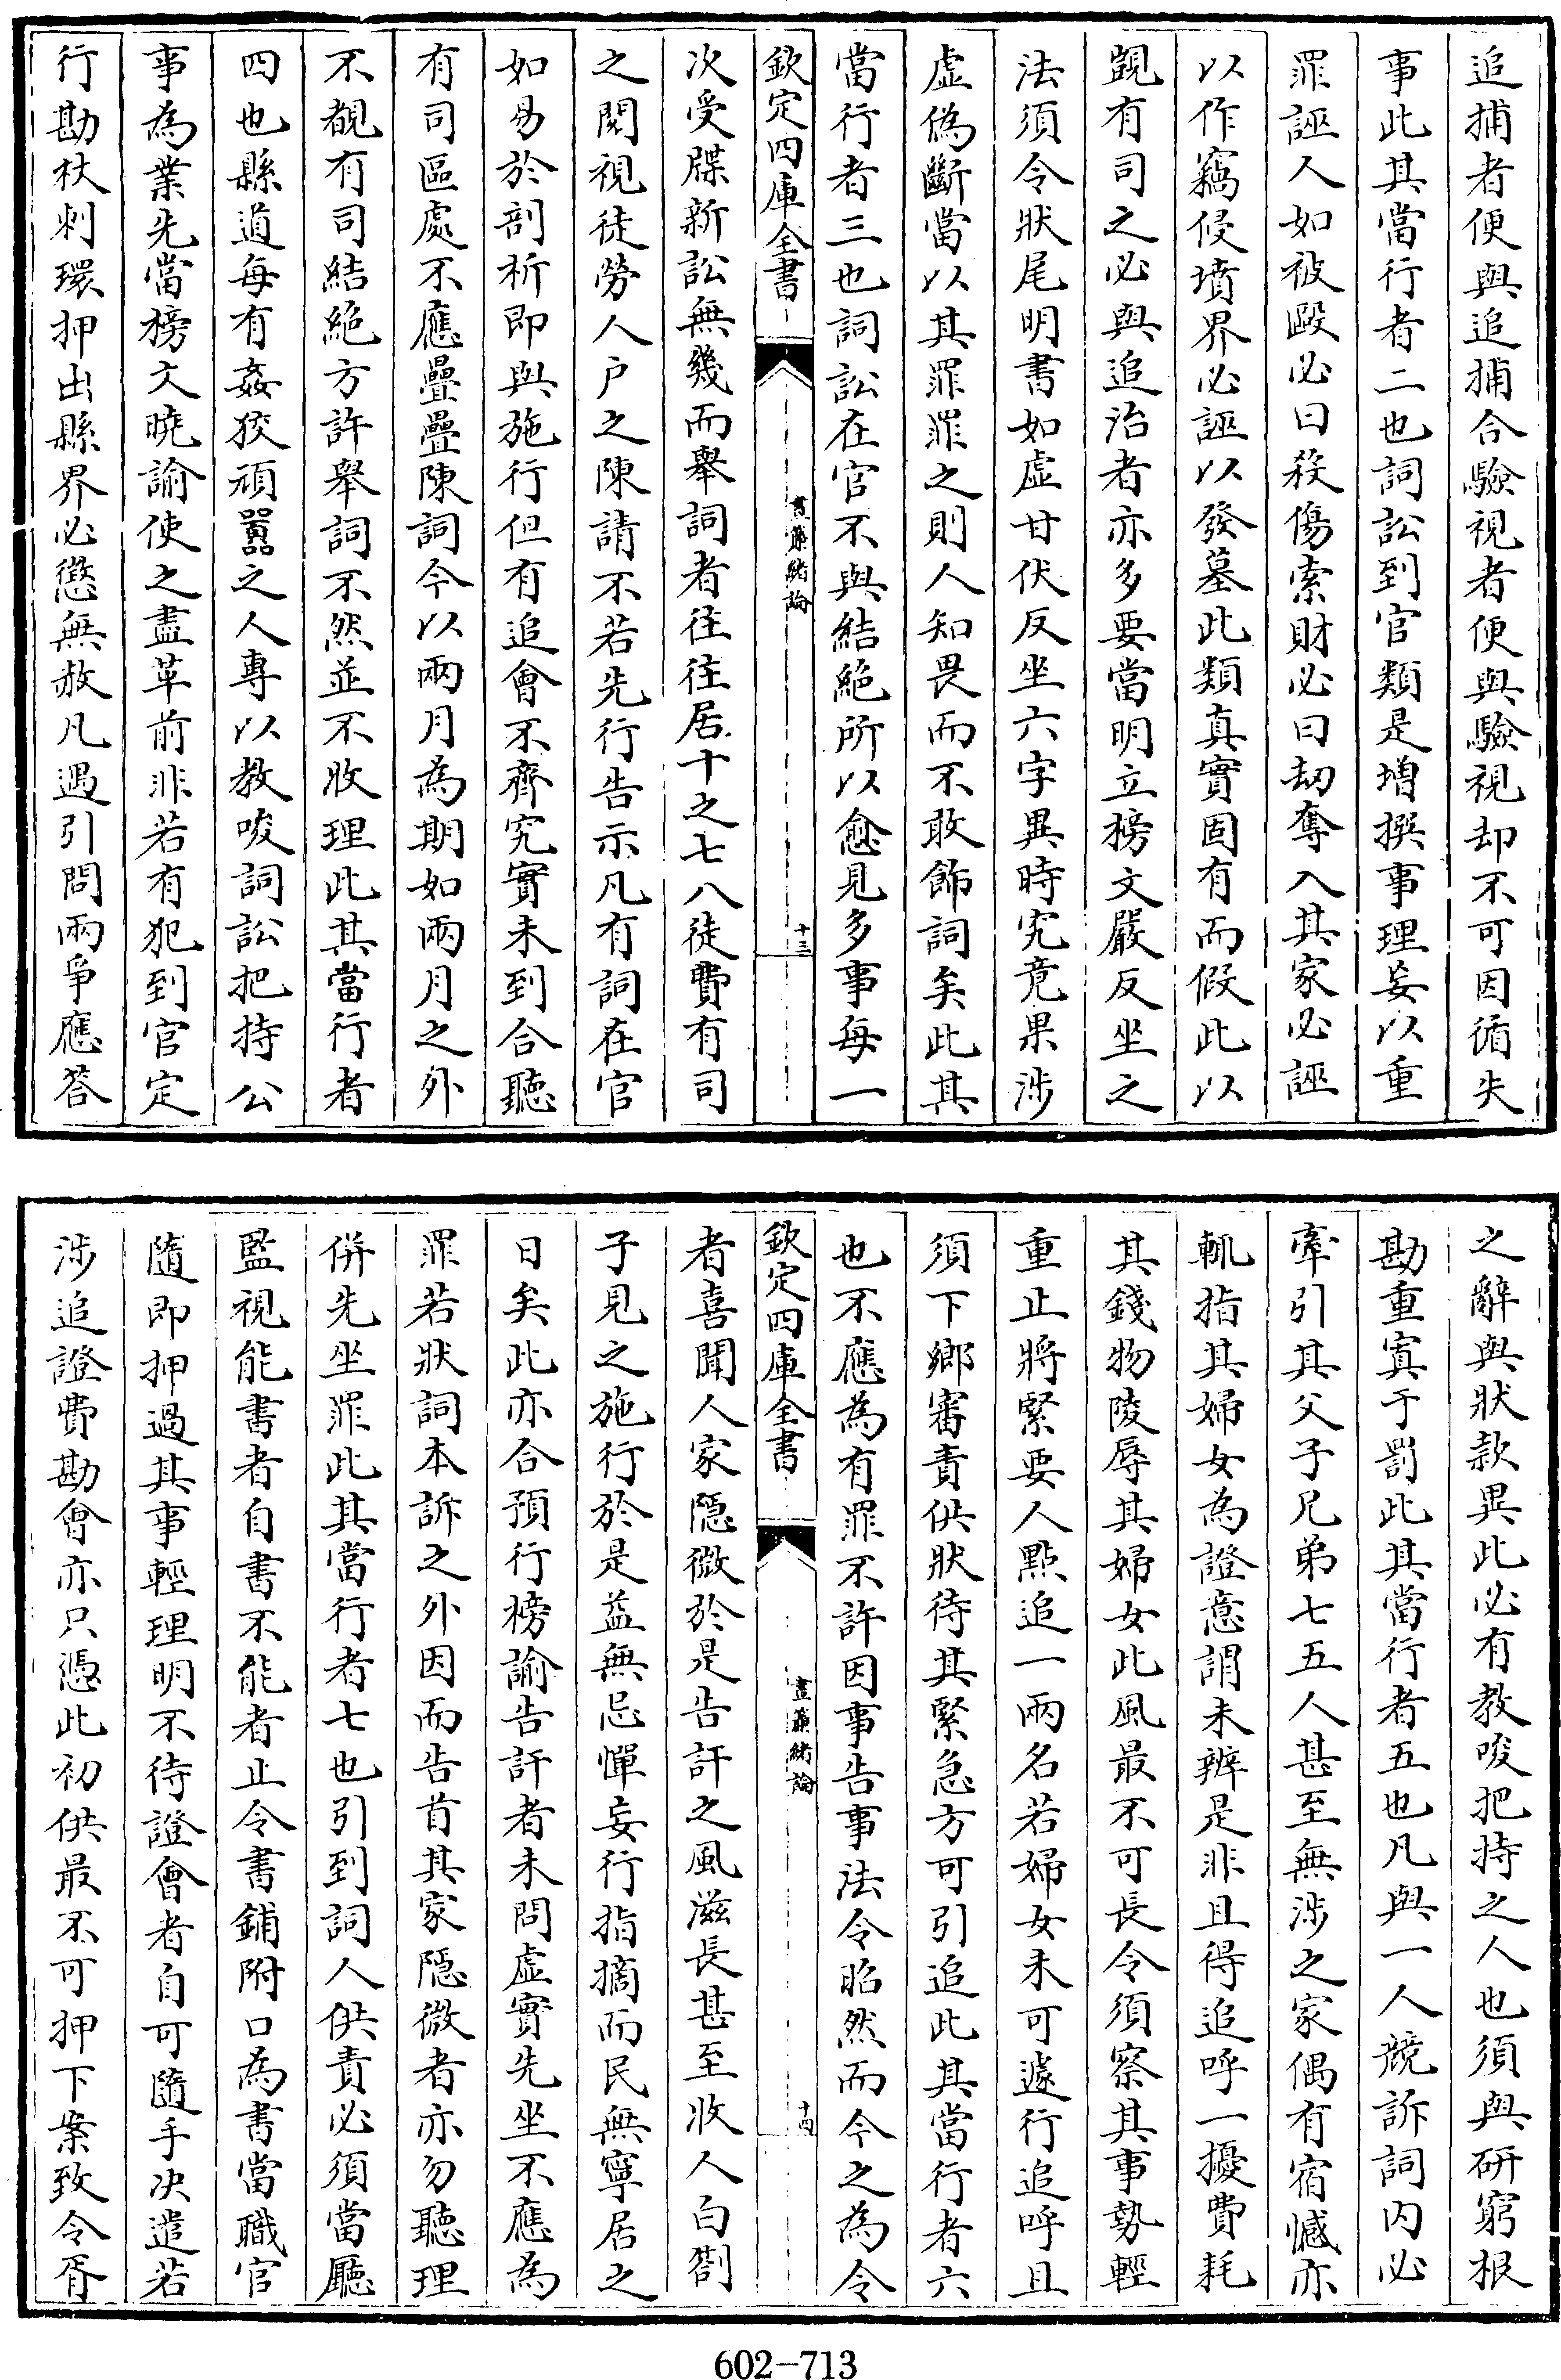 追捕者便與追捕合驗視者便與驗視却不可因循失
事此其當行者二也詞訟到官類是增撰事理妄以重
罪誣人如被毆必曰殺傷索財必曰刧奪入其家必誣
以作竊侵墳界必誣以發墓此類真實固有而假此以
覬有司之必與追治者亦多要當明立榜文嚴反坐之
法須令狀尾明書如虛甘伏反坐六字異時究竟果涉
虛偽斷當以其罪罪之則人知畏而不敢飾詞矣此其
當行者三也詞訟在官不與結絕所以愈見多事每一
欽定四庫全書
晝簾緒論
十三
次受牒新訟無幾而舉詞者往往居十之七八徒費有司
之閱視徒勞人户之陳請不若先行告示凡有詞在官
如易於剖析即與施行但有追會不齊究實未到合聽
有司區處不應疊疊陳詞今以兩月為期如兩月之外
不覩有司結絕方許舉詞不然並不收理此其當行者
四也縣道每有姦狡頑嚚之人專以教唆詞訟把持公
事為業先當榜文曉諭使之盡革前非若有犯到官定
行勘杖刺環押出縣界必懲無赦凡遇引問兩爭應答
之辭與狀款異此必有教唆把持之人也須與研窮根
勘重寘于罰此其當行者五也凡與一人競訴詞内必
牽引其父子兄弟七五人甚至無涉之家偶有宿憾亦
輒指其婦女為證意謂未辨是非且得追呼一擾費耗
其錢物陵辱其婦女此風最不可長令須察其事勢輕
重止將緊要人點追一兩名若婦女未可遽行追呼且
須下鄉審責供狀待其緊急方可引追此其當行者六
也不應為有罪不許因事告事法令昭然而今之為令
欽定四庫全書
晝簾緒論
十四
者喜聞人家隱微於是告訐之風滋長甚至收人白劄
子見之施行於是益無忌憚妄行指摘而民無寧居之
日矣此亦合預行榜諭告訐者未問虛實先坐不應為
罪若狀詞本訴之外因而告首其家隱微者亦勿聽理
併先坐罪此其當行者七也引到詞人供責必須當廳
監視能書者自書不能者止令書鋪附口為書當職官
隨即押過其事輕理明不待證會者自可隨手决遣若
涉追證費勘會亦只憑此初供最不可押下案致令胥
602-713